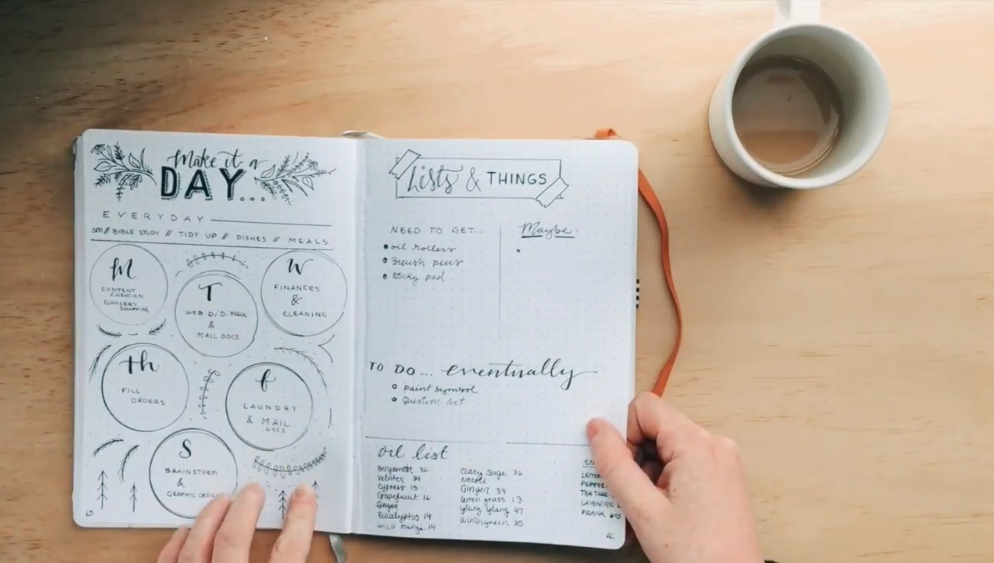 Make it a
DAY...
EVERYDAY
BIBLE STUDY // TIDY UP // DISHES // MEALS
M
CONTENT
CREATION
GROCERY
SHOPPING
T
WEB
&
MAIL DOCS
W
FINANCES
&
CLEANING
Th
FILL
ORDERS
f
LAUNDRY
& MAIL
DOCS
S
BRAINSTORM
&
GRAPHIC
Lists & THINGS
NEED TO GET...
oil rollers
sticky pad
Maybe:
TO DO... eventually
paint symbol
Question set
oil list
Bergamot 36
Vetiver
Cypress 15
Grapefruit 16
Ginger
Eucalyptus 14
Wild Orange 14
Clary Sage 36
Neroli
Ginger 34
Lemon grass 13
Ylang Ylang 47
Wintergreen 35
LAVENDER
FRANK